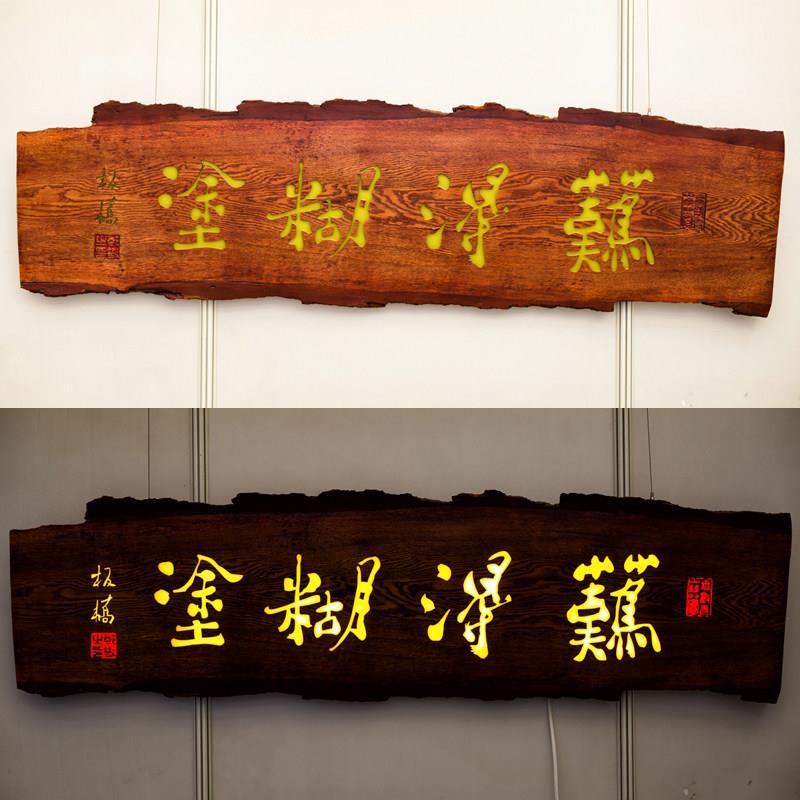 難得糊塗
板橋
難得糊塗
板橋